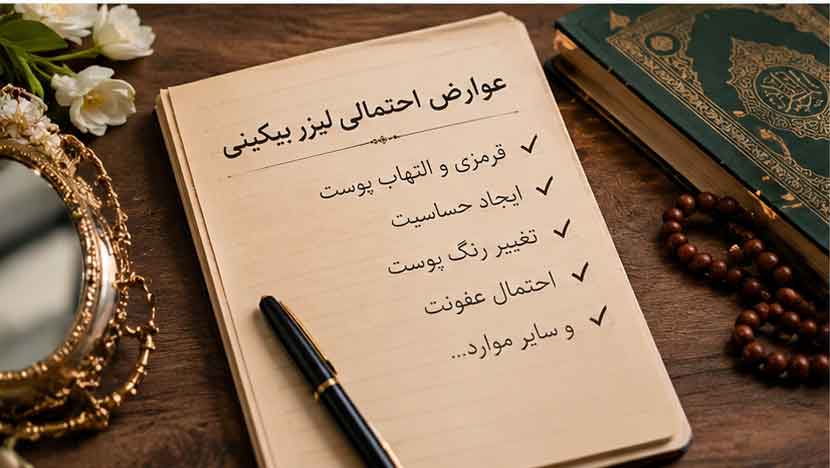 عوارض احتمالی لیزر بیکینی
قرمزی و التهاب پوست
ایجاد حساسیت
تغییر رنگ پوست
احتمال عفونت
و سایر موارد...